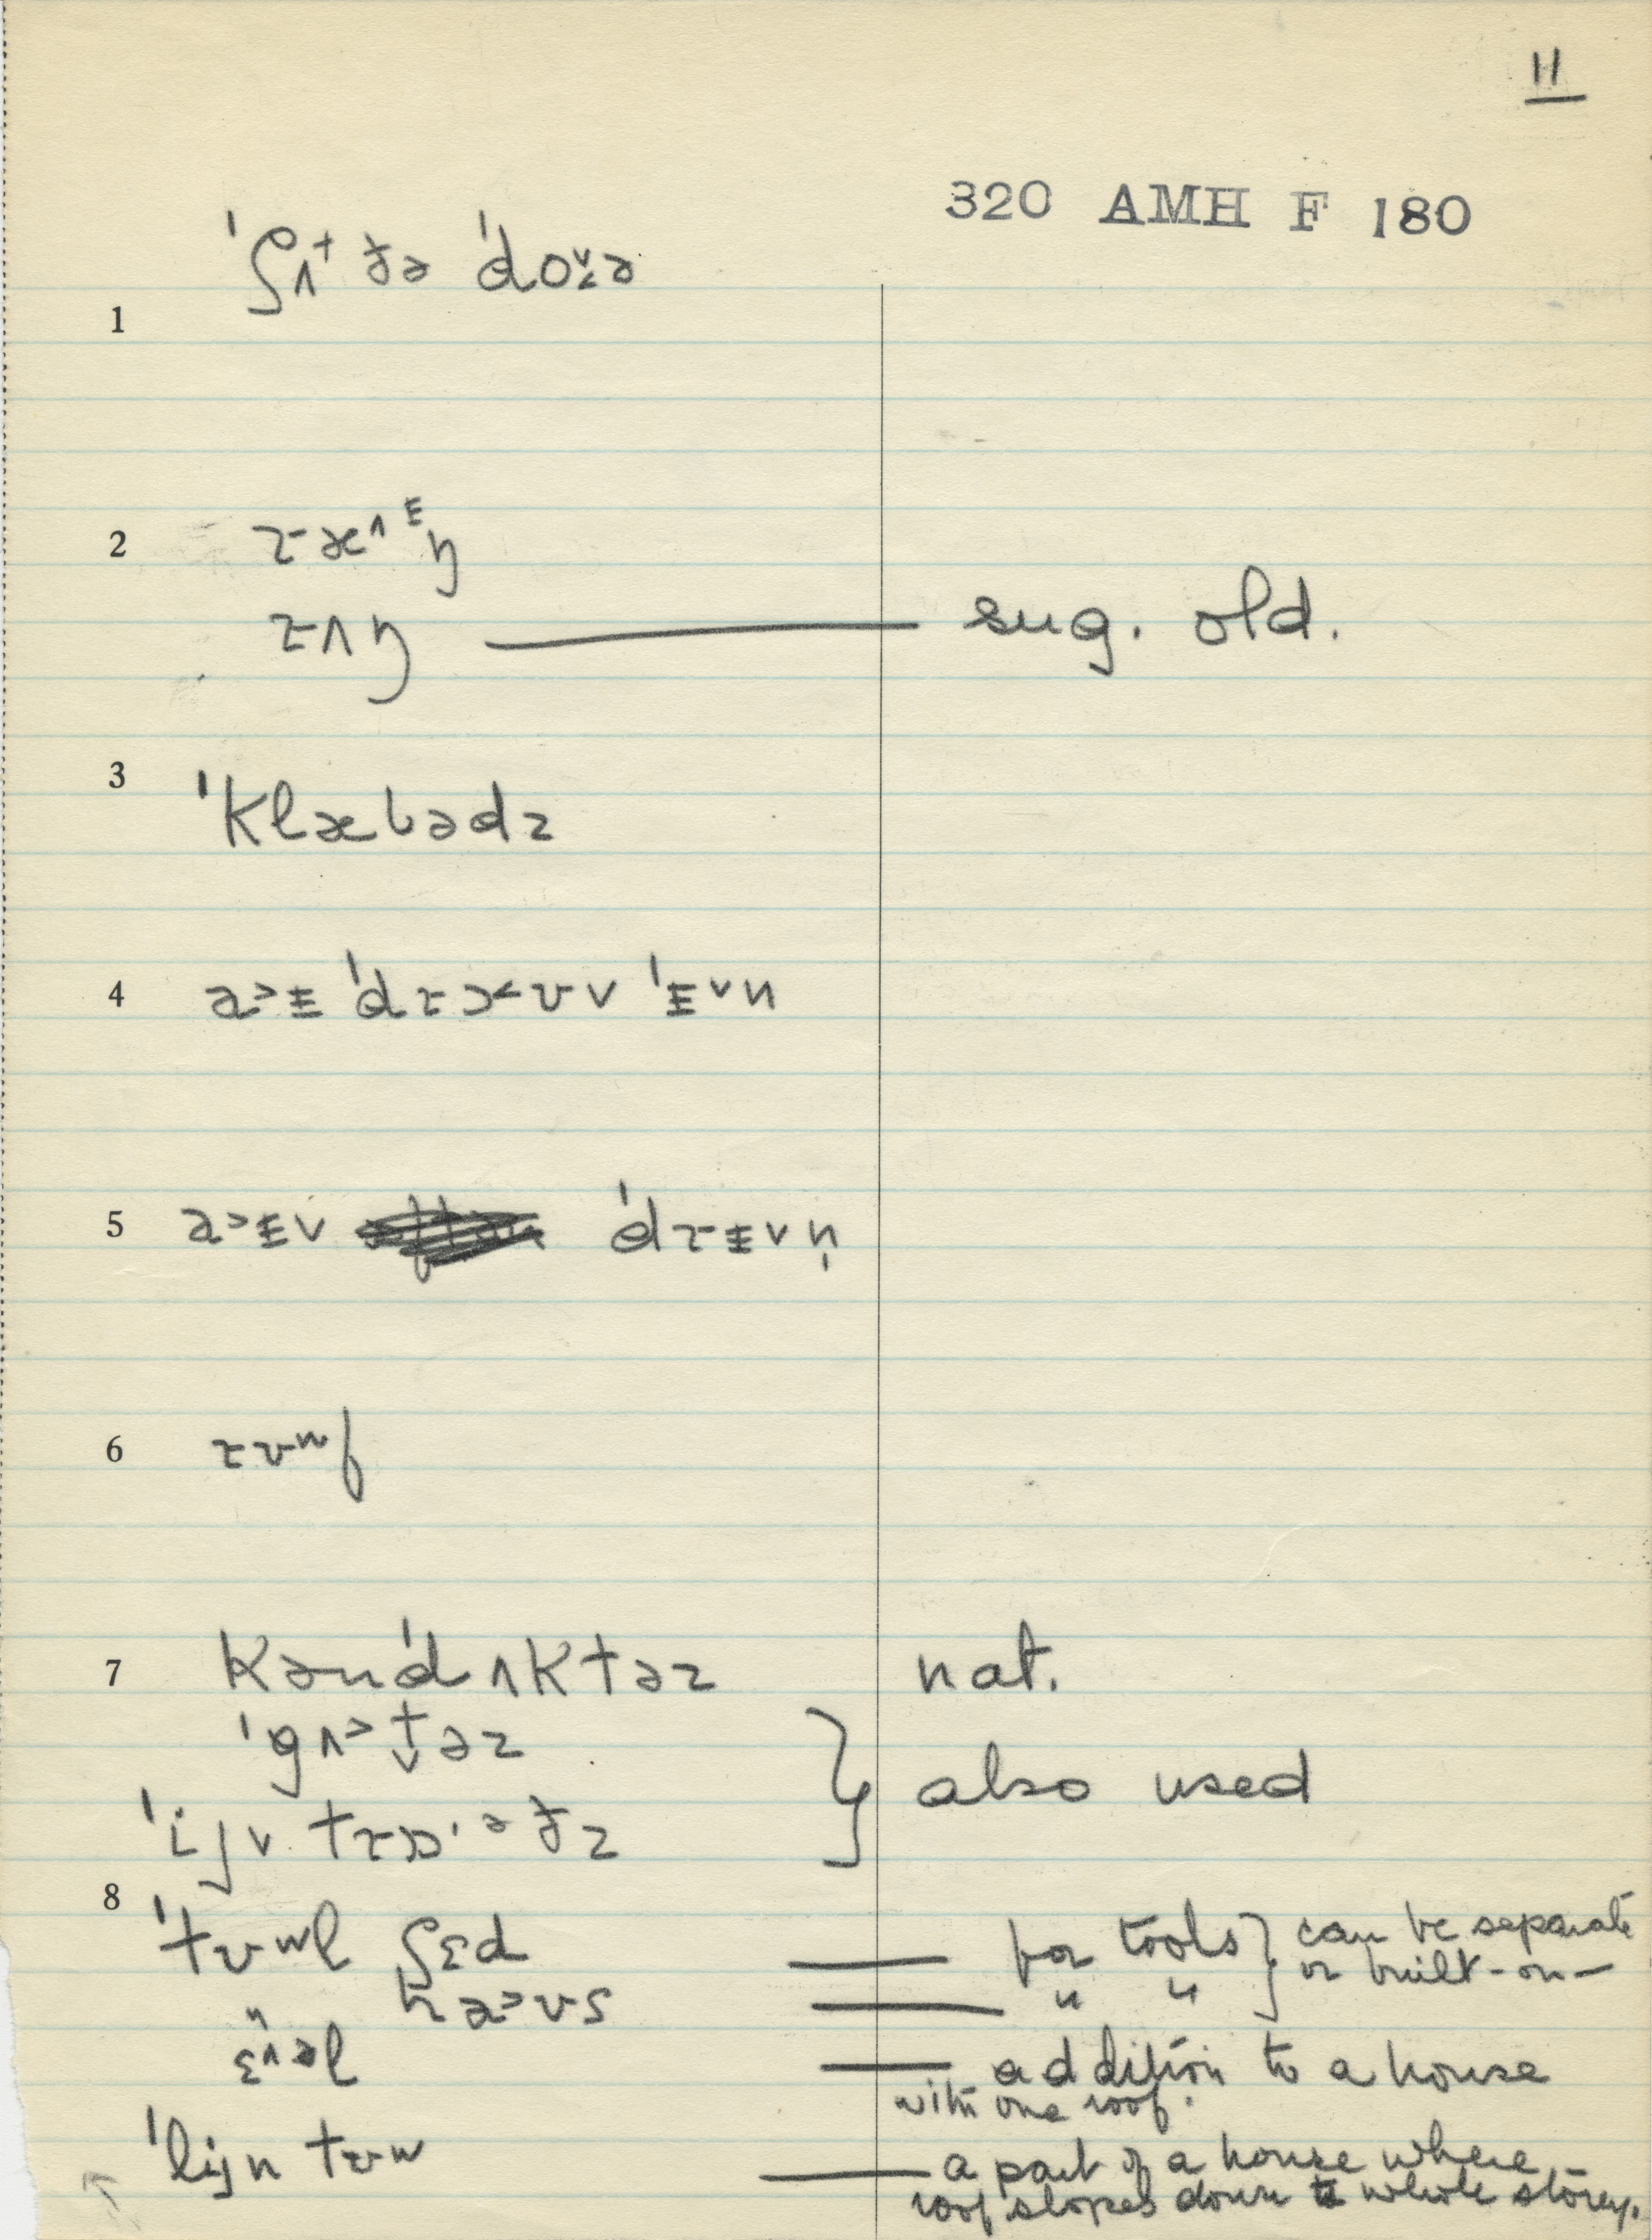 11
320 AMH F 180
1 ˈʃʌt ðə ˈdoɚə
2 ræ^ᵻŋ
rʌŋ — sug. old.
3 ˈklæbədz
4 a>ᵻ ˈdrɔ<ʊv ˈᵻ˅n
5 a>ᵻv ˈdrᵻvn̩
6 rʊʷf
7 kənˈdʌktəz nat.
ˈgʌ>t̬əz
ˈijv trɒ·əfz } also used
8 ˈtʊʷl ʃɛd — for tools } can be separate
haʊs — " " or built-on—
ɛ^əl — addition to a house
with one roof.
ˈlijn tʊʷ — a part of a house where
roof slopes down to whole storey.